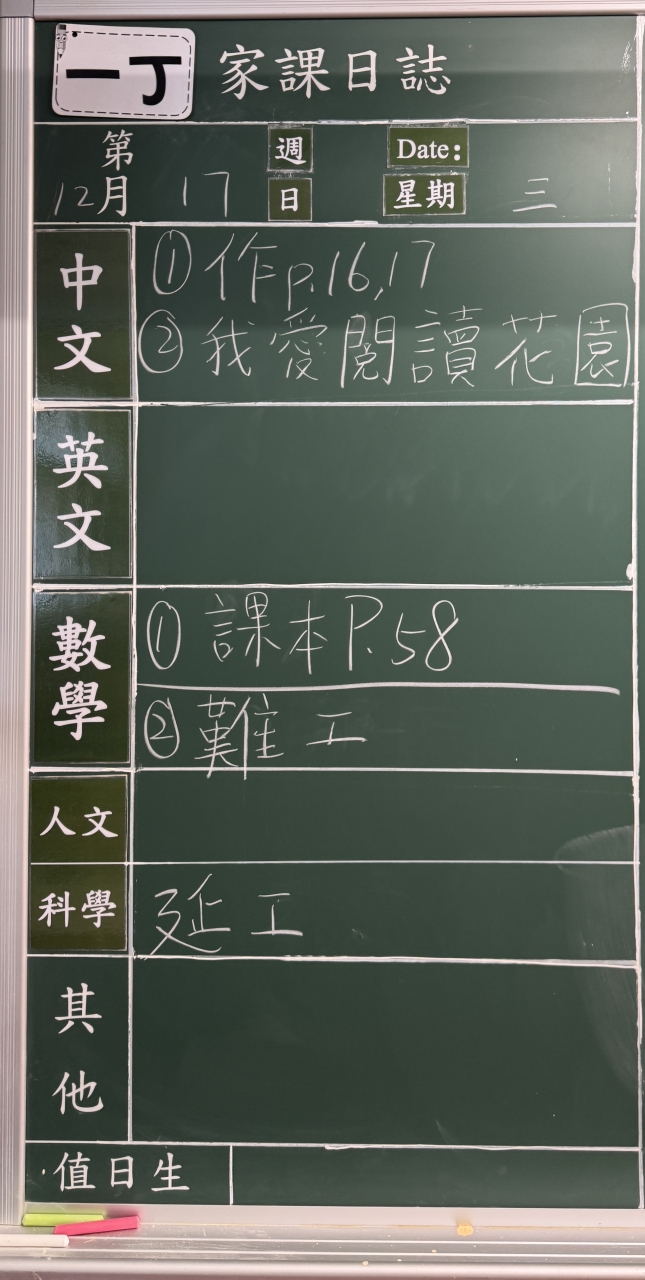 一丁 家課日誌
第 週 Date:
12月 17 日 星期 三
中文
① 作p.16,17
② 我愛閱讀花園
英文
數學
① 課本P.58
② 難工
人文
科學 延工
其他
值日生